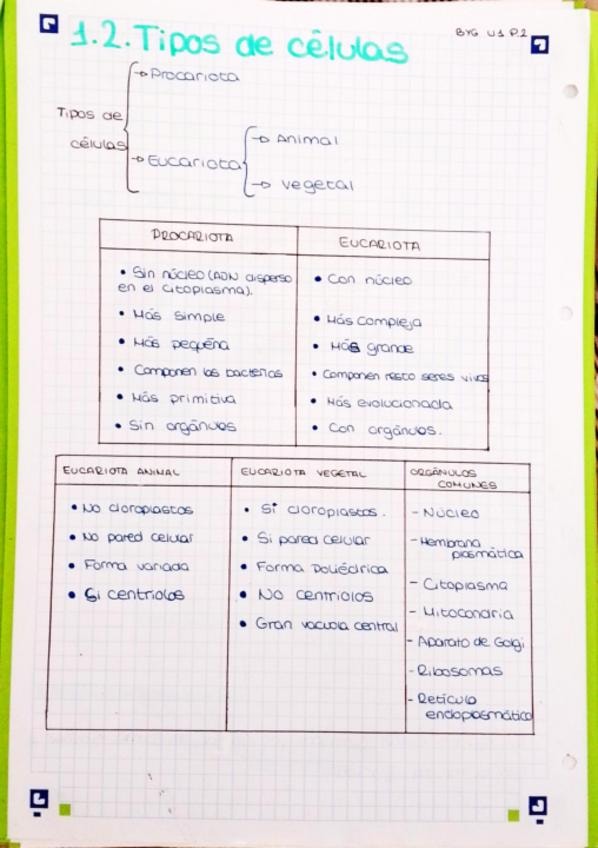 1.2. Tipos de células
BYG U1 P.2
Tipos de células
→ Procariota
→ Eucariota
→ Animal
→ vegetal
PROCARIOTA
• Sin núcleo (ADN disperso
en el citoplasma).
• Más simple
• Más pequeña
• Componen las bacterias
• Más primitiva
• Sin orgánulos
EUCARIOTA
• Con núcleo
• Más compleja
• Más grande
• Componen resto seres vivos
• Más evolucionada
• Con orgánulos.
EUCARIOTA ANIMAL
• No cloroplastos
• No pared celular
• Forma variada
• Si centriolos
EUCARIOTA VEGETAL
• Si cloroplastos.
• Si pared celular
• Forma Poliédrica
• No centriolos
• Gran vacuola central
ORGÁNULOS
COMUNES
- Núcleo
- Membrana
plasmática
- Citoplasma
- Mitocondria
- Aparato de Golgi
- Ribosomas
- Retículo
endoplasmático